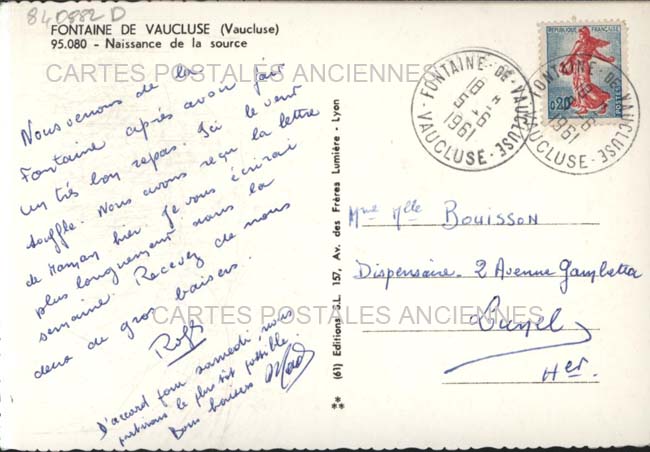 840882 D
FONTAINE DE VAUCLUSE (Vaucluse)
95.080 - Naissance de la source
CARTES POSTALES ANCIENNES
Nous venons de la
Fontaine après avoir fait
un très bon repas. Ici le vent
souffle. Nous avons reçu la lettre
de Maman hier. Je vous écrirai
plus longuement dans la
semaine. Recevez de nous
deux de gros baisers.
D'accord pour samedi nous
partirons le plus tôt possible.
Bons baisers
(61) Editions S.L. 157, Av. des Frères Lumière - Lyon
**
REPUBLIQUE FRANÇAISE
0,20
POSTES
FONTAINE-DE-VAUCLUSE
1961
VAUCLUSE
FONTAINE-DE-VAUCLUSE
1961
VAUCLUSE
Mme Mlle Bouisson
Dispensaire. 2 Avenue Gambetta
Lunel
Her.
CARTES POSTALES ANCIENNES